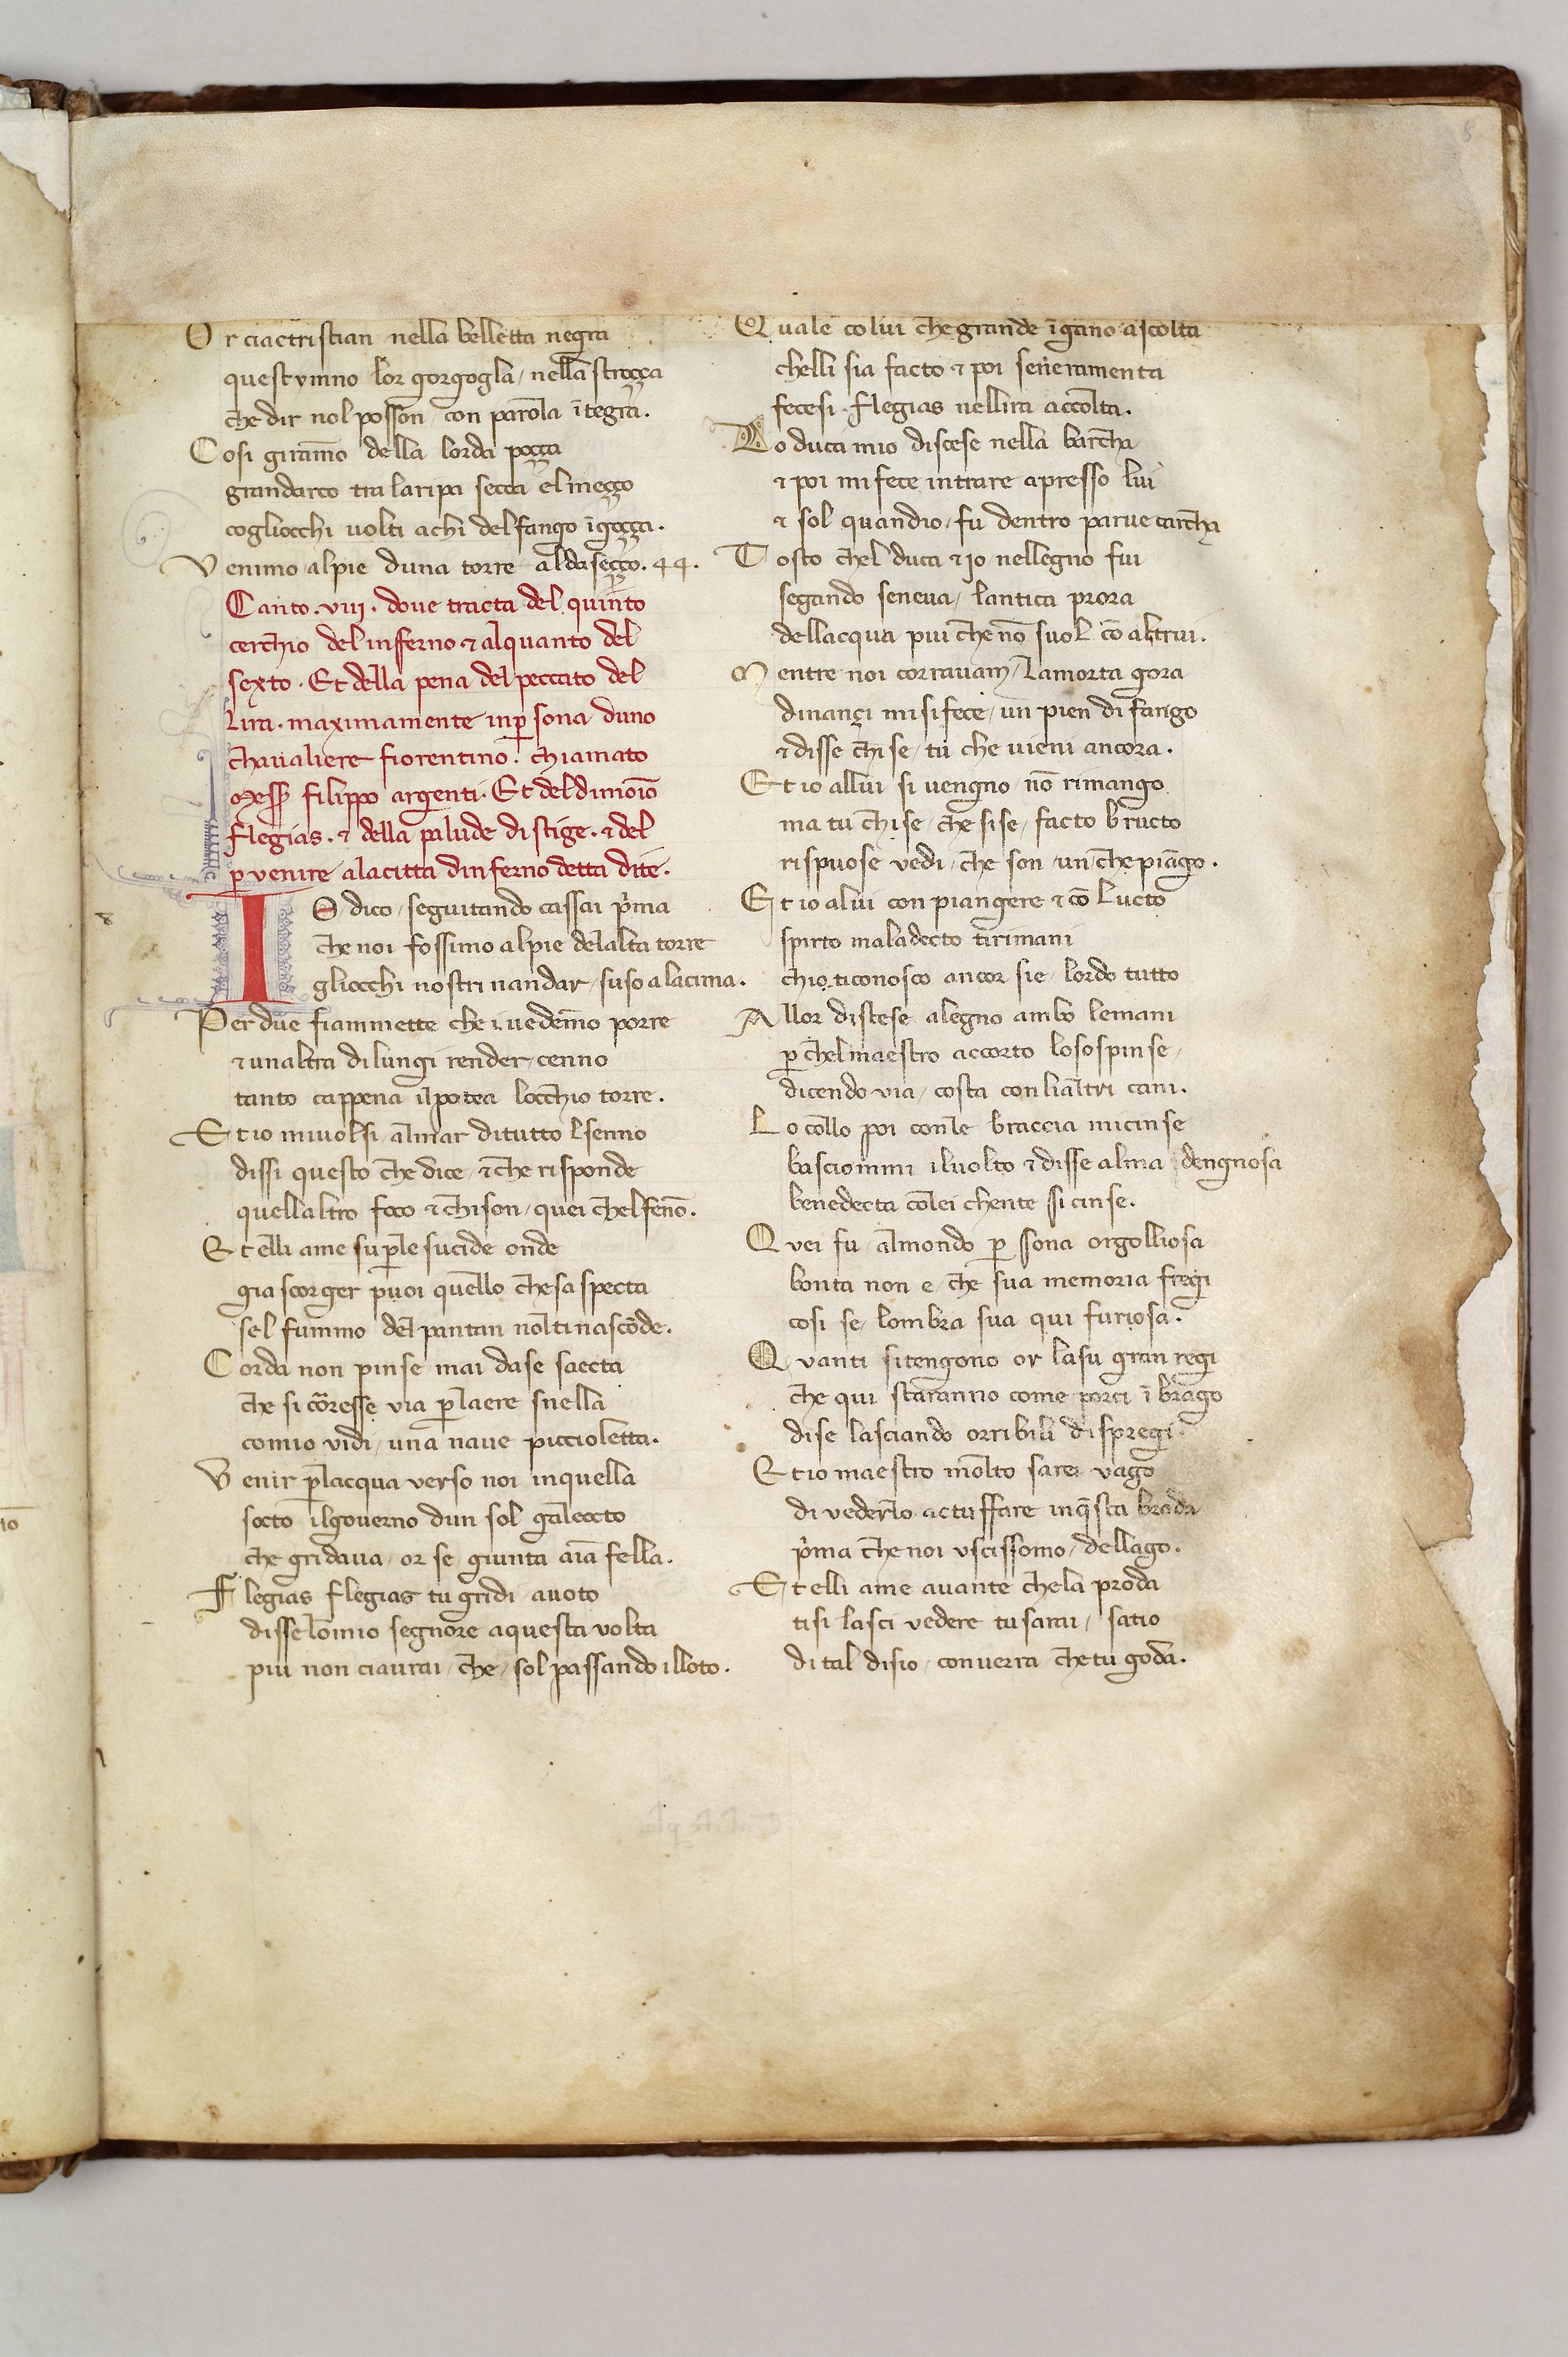 Or ciactristian nella belletta negra
quest ymno lor gorgogla / nella stroçça
che dir nol posson / con parola ītegra.
Cosi giramo della lorda poçça
grandarco tra laripa secca el meçço
cogliocchi uolti achi del fango īgoçça.
Venimo alpie duna torre aldaseçço. 44.
Canto. viij. doue tracta del quinto
cerchio del inferno ⁊ alquanto del
sexto. Et della pena del peccato del
lira. maximamente inꝑsona duno
chaualiere fiorentino. chiamato
Mess̄ filippo argenti. Et del dimoīo
flegias. ⁊ della palude di stige. ⁊ del
ꝑuenire alacitta dinferno detta dite.
IO dico / seguitando cassai p̄ma
che noi fossimo alpie delalta torre
gliocchi nostri nandar / suso alacima.
Per due fiammette che i uedemo porre
⁊ unaltra dilungi render / cenno
tanto cappena il potea locchio torre.
Et io miuolsi almar ditutto lsenno
dissi questo che dice / ⁊ che risponde
quellaltro foco ⁊ chi son / quei chelfeno.
Et elli ame su ꝑle sucide onde
gia scorger puoi quello chesaspecta
sel fummo del pantan nol tinascōde.
Corda non pinse mai dase saecta
che si coresse via ꝑlaere snella
comio vidi / una naue piccioletta.
Venir ꝑlacqua verso noi inquella
socto ilgouerno dun sol galeocto
che gridaua / or se / giunta aīa fella.
Flegias flegias tu gridi auoto
disse lomio segnore aquesta volta
piu non ciaurai / che / sol passando illoto.
Quale colui che grande īgano ascolta
chelli sia facto ⁊ poi seneramenta
fecesi flegias nellira accolta.
Lo duca mio discese nella barcha
⁊ poi mi fece intrare apresso lui
⁊ sol quandio / fu dentro parue carcha
Tosto chel duca ⁊ io nellegno fui
segando seneua / lantica prora
dellacqua piu che nō suol cō altrui.
Mentre noi corrauam / lamorta gora
dinançi misifece / un pien di fango
⁊ disse chi se / tu che uieni ancora.
Et io allui si uengno / nō rimango
ma tu chi se / che si se / facto bructo
rispuose vedi / che son / un / che piāgo.
Et io alui con piangere ⁊ cō lucto
spirto maladecto tirimani
chio ticonosco ancor sie / lordo tutto
Allor distese alegno ambo lemani
ꝑ chelmaestro accorto lososspinse /
dicendo via / costa conlialtri cani.
Lo collo poi conle braccia micinse
basciommi iluolto ⁊ disse alma / dengnosa
benedecta colei chente si cinse.
Quei fu / almondo ꝑssona orgolliosa
bonta non e / che sua memoria fregi
cosi se / lombra sua qui furiosa.
Quanti sitengono or lasu gran regi
che qui staranno come porci ī brago
dise lasciando orribili dispregi.
Et io maestro molto sarei vago
di vederlo actuffare inq̄sta broda
p̄ma che noi vscissomo / dellago.
Et elli ame auante che la proda
tisi lasci vedere tu sarai / satio
di tal disio / conuerra che tu goda.